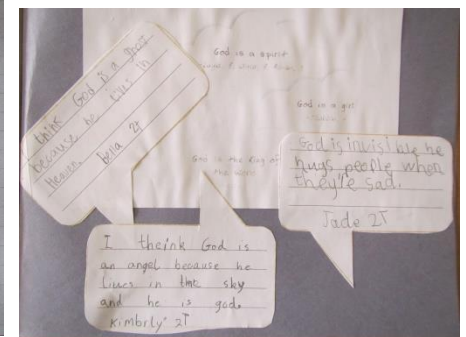 God is a spirit
God is a girl
God is the King of
the World
think God is a gost
because he livi in
Heaven.
bella 2T
God is invisible he
hugs people when
they're sad.
Jade 2T
I theink God is
an angel because he
lives in the sky
and he is god.
Kimbrly 2T